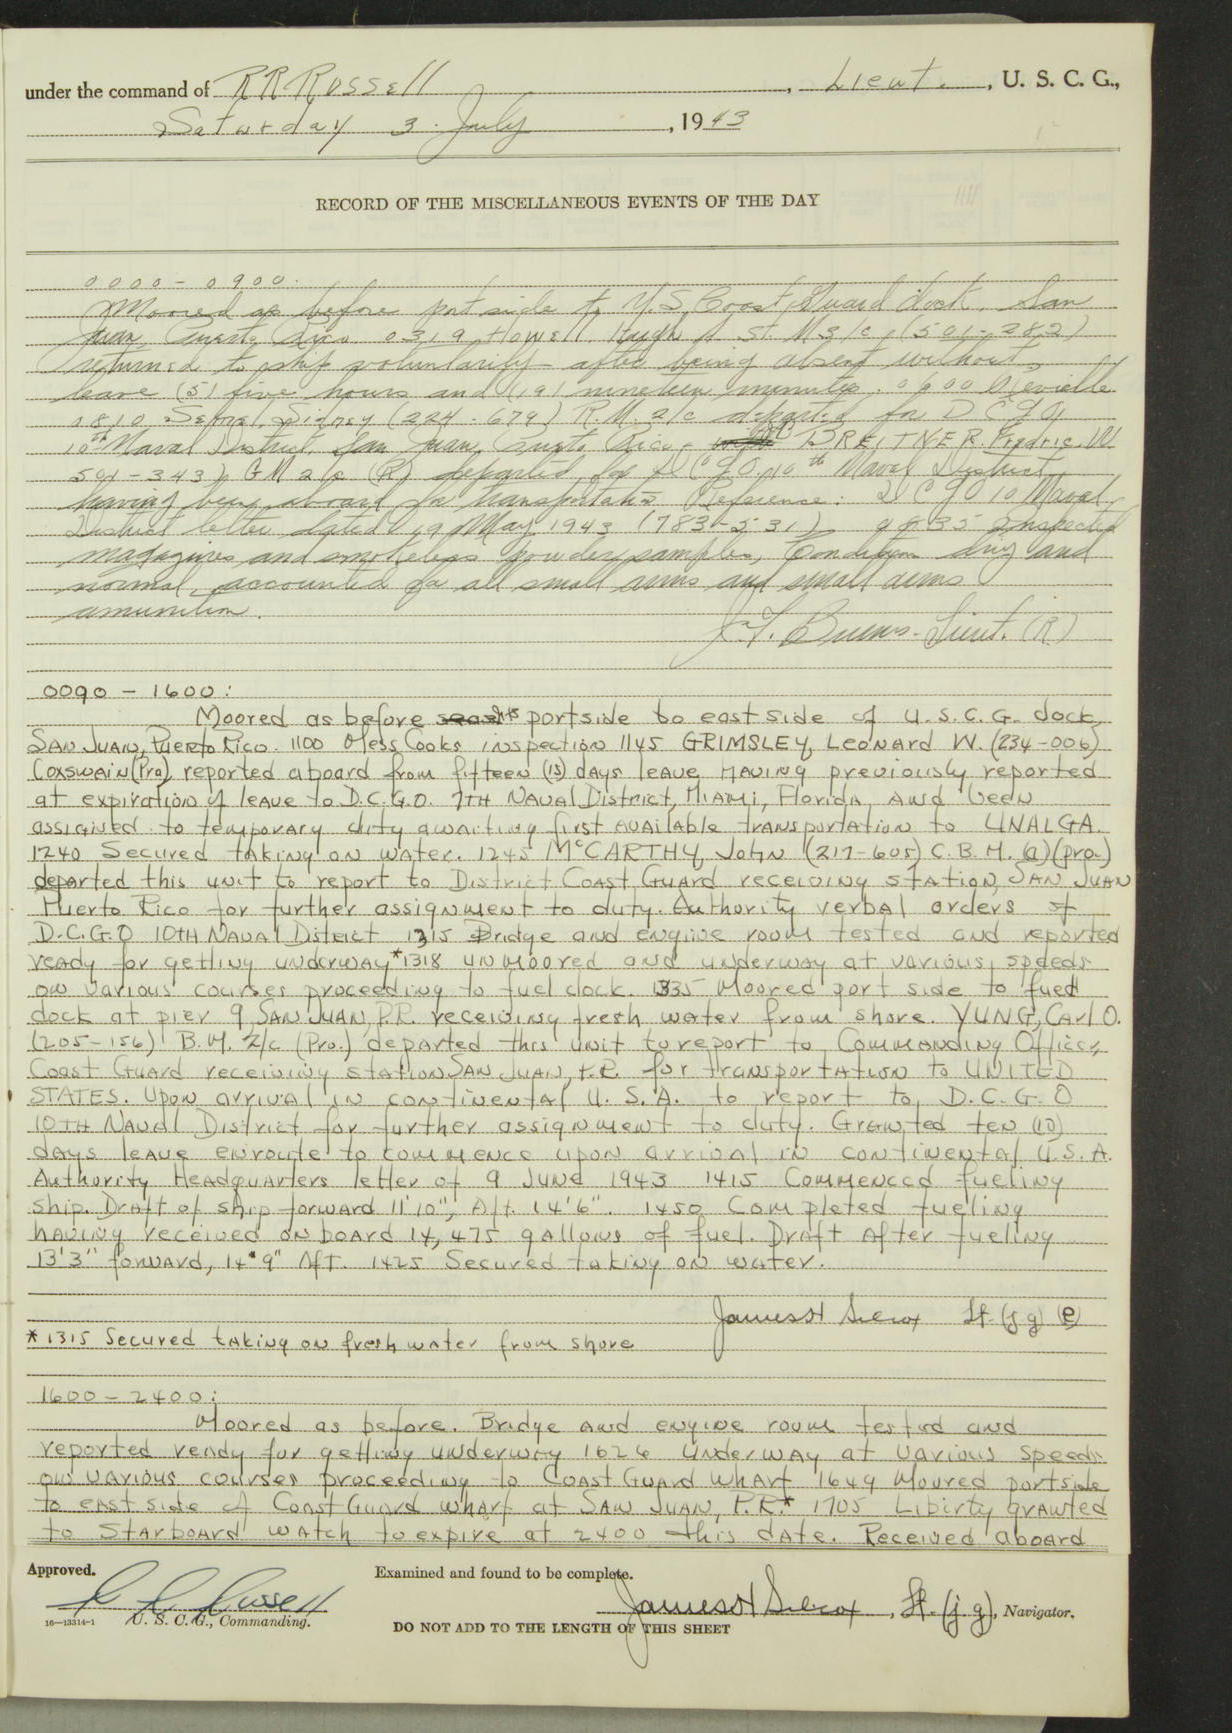 under the command of R R Russell, Lieut., U. S. C. G.,
Saturday 3 July, 1943
RECORD OF THE MISCELLANEOUS EVENTS OF THE DAY
0000 - 0900.
Moored as before port side to U.S. Coast Guard dock, San
Juan, Puerto Rico 0319 Howell, Hugh St. M 3/c, (501-282)
returned to ship voluntarily after being absent without
leave (5) five hours and (19) nineteen minutes. 0600 Reveille
0810 Sidney (224-679) R.M. 2/c departed for D C G O
10th Naval District, San Juan, Puerto Rico - BREITNER, Fredric W.
501-343) GM 2/c (R) departed for D C G O, 10th Naval District,
having been aboard for transportation Reference: D C G O 10 Naval
District letter dated 19 May 1943 (783-531) 0835 Inspected
magazines and smokeless powder samples, Conditions dry and
normal, accounted for all small arms and small arms
amunition.
J. Burns - Lieut. (R)
0090 - 1600:
Moored as before portside to east side of U.S.C.G. dock,
SAN JUAN, Puerto Rico. 1100 Mess Cooks inspection 1145 GRIMSLEY, Leonard W. (234-006)
Coxswain (Pro) reported aboard from fifteen (15) days leave HAVING previously reported
at expiration of leave to D.C.G.O. 7TH Naval District, Miami, Florida, and been
assigned to temporary duty awaiting first AVAILABLE transportation to UNALGA.
1240 Secured taking on water. 1245 McCARTHY, John (217-605) C.B.M. (a)(pro.)
departed this unit to report to District Coast Guard receiving station, SAN JUAN
Puerto Rico for further assignment to duty. Authority verbal orders of
D.C.G.O 10TH NAVAL District 1315 Bridge and engine room tested and reported
ready for getting underway *1318 unmoored and underway at various speeds
on various courses proceeding to fuel dock. 1335 Moored port side to fuel
dock at pier 9, SAN JUAN, P.R. receiving fresh water from shore. YUNG, Carl O.
(205-156) B.M. 2/c (Pro.) departed this unit to report to Commanding Officer,
Coast Guard receiving station SAN JUAN, P.R. for transportation to UNITED
STATES. Upon arrival in continental U.S.A. to report to D.C.G.O
10TH Naval District for further assignment to duty. Granted ten (10)
days leave enroute to commence upon arrival in continental U.S.A.
Authority Headquarters letter of 9 June 1943 1415 Commenced fueling
ship. Draft of ship forward 11'10", Aft. 14'6". 1450 Completed fueling
having received on board 14,475 gallons of fuel. Draft After fueling
13'3" forward, 14'9" Aft. 1425 Secured taking on water.
James H Silcox Lt. (j g) (e)
*1315 Secured taking on fresh water from shore
1600 - 2400:
Moored as before. Bridge and engine room tested and
reported ready for getting underway 1626 Underway at various speeds
on various courses proceeding to Coast Guard wharf 1649 Moored portside
to east side of Coast Guard wharf at SAN JUAN, P.R.* 1705 Liberty granted
to Starboard watch to expire at 2400 this date. Received aboard
Approved.
Examined and found to be complete.
R R Russell
U. S. C. G., Commanding.
James H Silcox, Lt. (j g), Navigator.
16-13314-1
DO NOT ADD TO THE LENGTH OF THIS SHEET